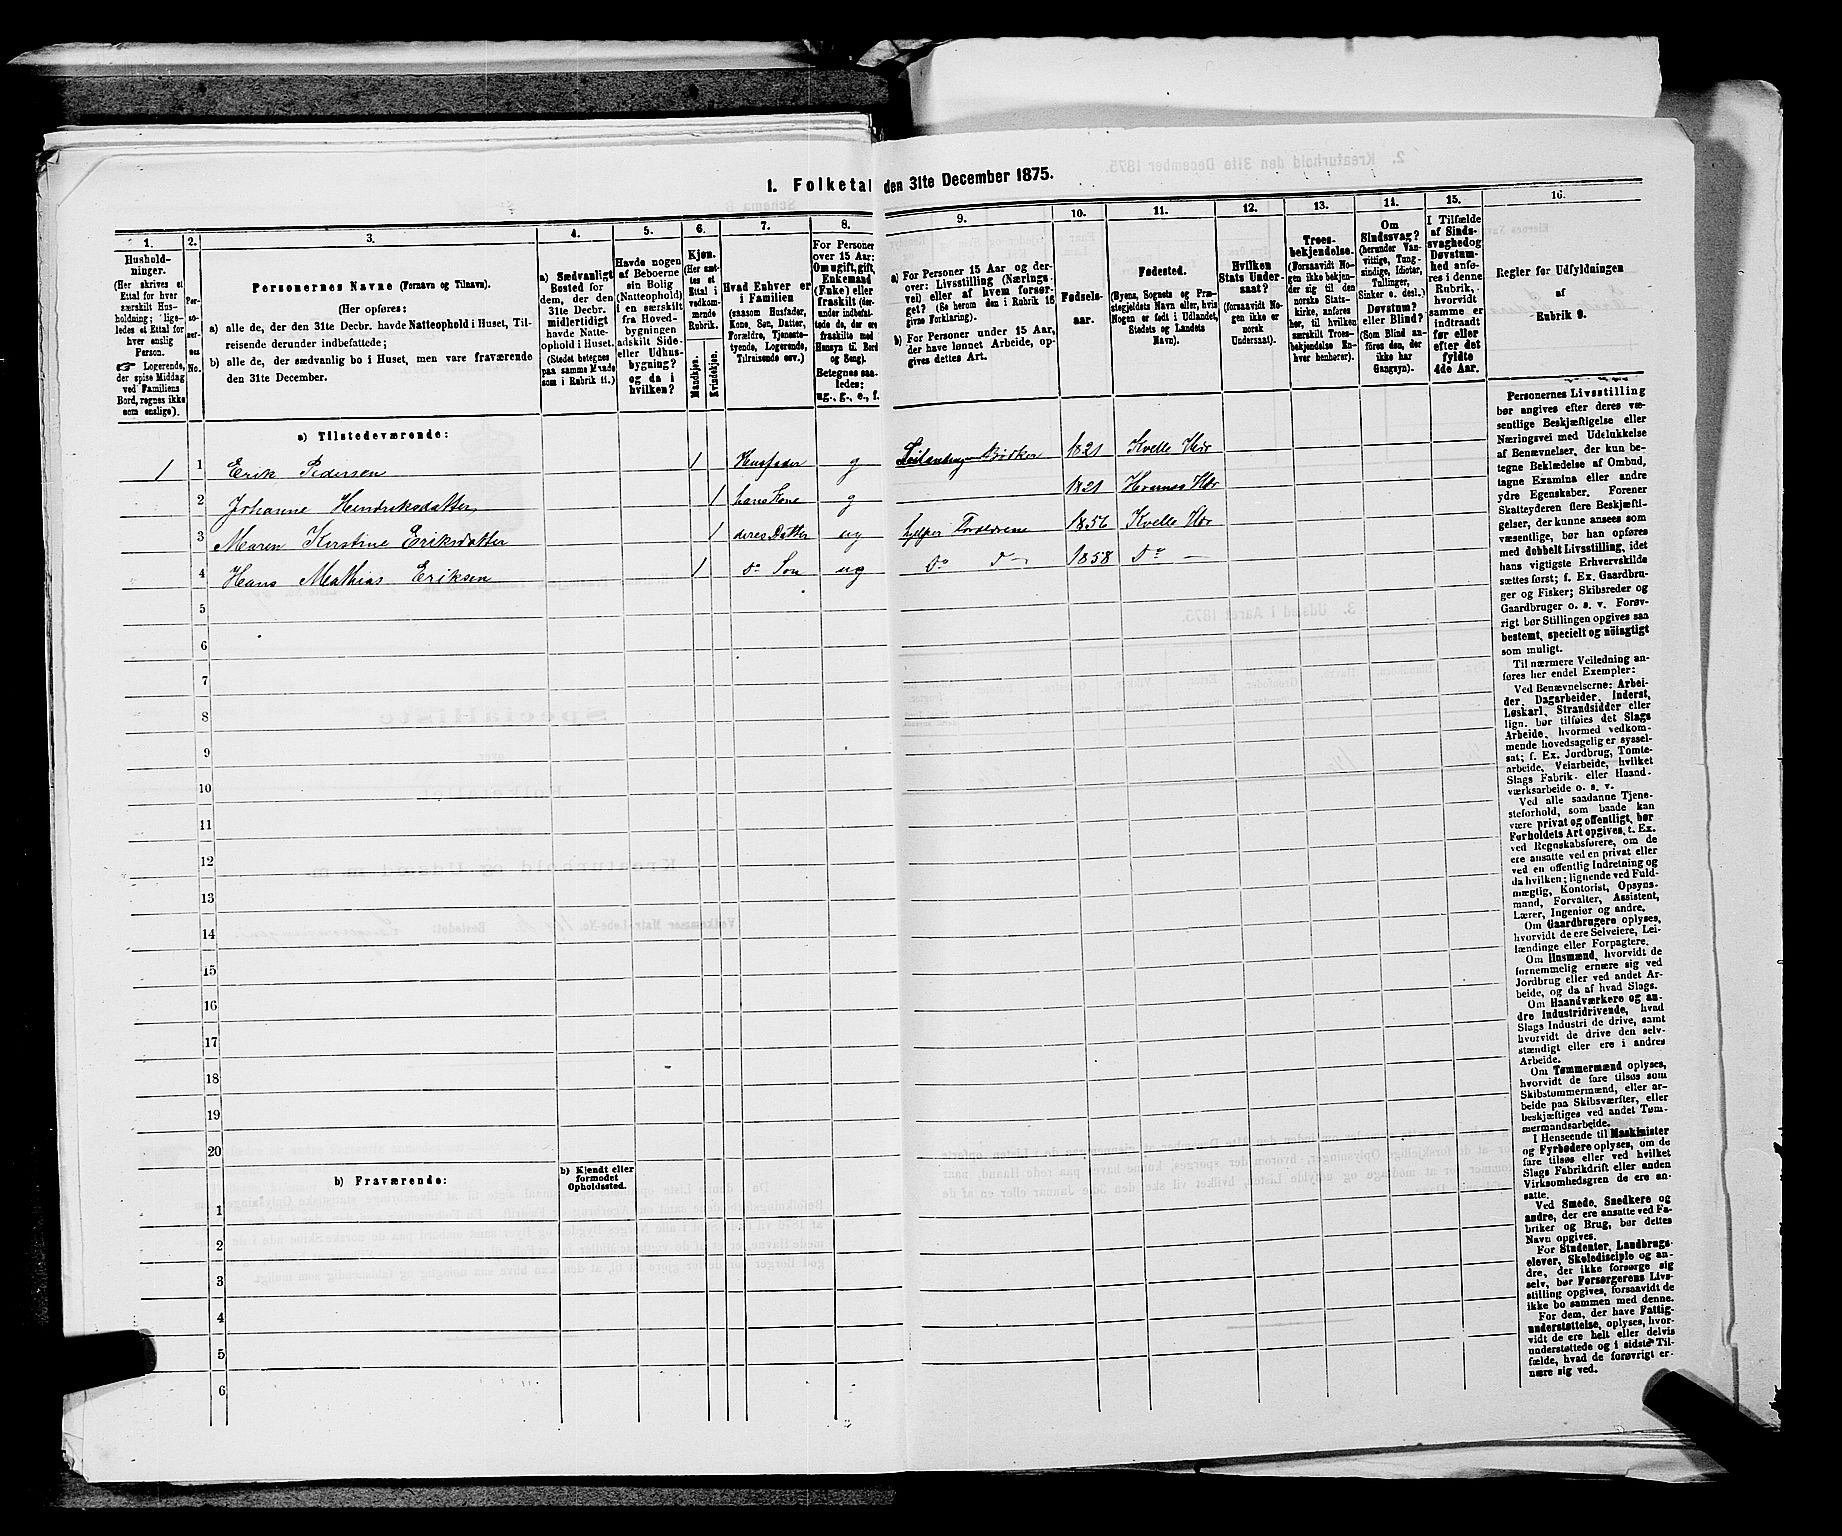 1. Folketal den 31te December 1875.
1.
2.
3.
4.
5.
6.
7.
8.
9.
10.
11.
12.
13.
14.
15.
16.
Hushold-
ninger.
(Her skrives et
Ettal for hver
særskilt Hus-
holdning; lige-
ledes et Ettal for
hver enslig
Person.
☞ Logerende,
der spise Middag
ved Familiens
Bord, regnes ikke
som enslige).
Per-
so-
ner-
nes
No.
Personernes Navne (Fornavn og Tilnavn).
(Her opføres:
a) alle de, der den 31te Decbr. havde Natteophold i Huset, Til-
reisende derunder indbefattede;
b) alle de, der sædvanlig bo i Huset, men vare fraværende
den 31te December.
a) Sædvanligt
Bosted for
dem, der den
31te Decbr.
midlertidigt
havde Natte-
ophold i Huset.
(Stedet betegnes
paa samme Maade
som i Rubrik 11.)
Havde nogen
af Beboerne
sin Bolig
(Natteophold)
i en særskilt
fra Hoved-
bygningen
adskilt Side-
eller Udhus-
bygning?
og da i
hvilken?
Kjøn.
(Her sæt-
tes et
Ettal i
vedkom-
mende
Rubrik.
Mandkjøn.
Kvindekjøn.
Hvad Enhver er
i Familien
(saasom Husfader,
Kone, Søn, Datter,
Forældre, Tjeneste-
tyende, Logerende,
Tilreisende osv.)
For Personer
over 15 Aar:
Om ugift, gift,
Enkemand
(Enke) eller
fraskilt (der-
under indbefat-
tede de, der ere
fraskilte med
Hensyn til Bord
og Seng).
Betegnes saa-
ledes:
ug., g., e., f.
a) For Personer 15 Aar og der-
over: Livsstilling (Nærings-
vei) eller af hvem forsør-
get? (Se herom den i Rubrik 16
givne Forklaring).
b) For Personer under 15 Aar,
der have lønnet Arbeide, op-
gives dettes Art.
Fødsels-
aar.
Fødested.
(Byens, Sognets og Præ-
stegjeldets Navn eller, hvis
Nogen er født i Udlandet,
Stedets og Landets
Navn).
Hvilken
Stats Under-
saat?
(forsaavidt No-
gen ikke er
norsk
Undersaat).
Troes-
bekjendelse.
(Forsaavidt No-
gen ikke bekjen-
der sig til den
norske Stats-
kirke, anføres
her, til hvilken
særskilt Troes-
bekjendelse En-
hver henhører).
Om
Sindssvag?
(herunder Van-
vittige, Tung-
sindige, Idioter,
Tullinger,
Sinker o. desl.)
Døvstum?
eller Blind?
(Som Blind an-
føres den, der
ikke har
Gangsyn).
I Tilfælde
af Sinds-
svaghed og
Døvstum-
hed anfø-
res i denne
Rubrik,
hvorvidt
samme er
indtraadt
før eller
efter det
fyldte
4de Aar.
Regler for Udfyldningen
af
Rubrik 9.
a) Tilstedeværende:
1 1 Erik Pedersen 1 Husfader g Bødker 1821 Kvelle Hdr
2 Johanne Hendriksdatter 1 hans Kone g 1821 Hdr
3 Maren Kirstine Eriksdatter 1 deres Datter ug hjelper Forældrene 1856 Kvelle Hdr
4 Hans Mathias Eriksen 1 do Søn ug do do 1858 do —
5
6
7
8
9
10
11
12
13
14
15
16
17
18
19
20
b) Fraværende:
b) Kjendt eller
formodet
Opholdssted.
1
2
3
4
5
6
Personernes Livsstilling
bør angives efter deres væ-
sentlige Beskjæftigelse eller
Næringsvei med Udelukkelse
af Benævnelser, der kun be-
tegne Beklædelse af Ombud,
tagne Examina eller andre
ydre Egenskaber. Forener
Skatteyderen flere Beskjæfti-
gelser, der kunne ansees som
væsentlige, bør han opføres
med dobbelt Livsstilling, idet
hans vigtigste Erhvervskilde
sættes først; f. Ex. Gaardbru-
ger og Fisker; Skibsreder og
Gaardbruger o. s. v. Forøv-
rigt bør Stillingen opgives saa
bestemt, specielt og nöiagtigt
som muligt.
Til nærmere Veiledning an-
føres her endel Exempler:
Ved Benævnelserne: Arbei-
der, Dagarbeider, Inderst,
Løskarl, Strandsidder eller
lign. bør tilføies det Slags
Arbeide, hvormed vedkom-
mende hovedsagelig er syssel-
sat; f. Ex. Jordbrug, Tomte-
arbeide, Veiarbeide, hvilket
Slags Fabrik- eller Haand-
værksarbeide o. s. v.
Ved alle saadanne Tjene-
steforhold, som baade kan
være privat og offentligt, bør
Forholdets Art opgives, t. Ex.
ved Regnskabsførere, om de
ere ansatte ved en privat eller
ved en offentlig Indretning og
da hvilken; lignende ved Fuld-
mægtig, Kontorist, Opsyns-
mand, Forvalter, Assistent,
Lærer, Ingeniør og andre.
Om Gaardbrugere oplyses,
hvorvidt de ere Selveiere, Lei-
lændinge eller Forpagtere.
Om Husmænd, hvorvidt de
fornemmelig ernære sig ved
Jordbrug eller ved andet Ar-
beide, og da af hvad Slags.
Om Haandværkere og an-
dre Industridrivende, hvad
Slags Industri de drive, samt
hvorvidt de drive den selv-
stændigt eller ere i andres
Arbeide.
Om Tømmermænd oplyses,
hvorvidt de fare tilsøs som
Skibstømmermænd, eller ar-
beide paa Skibsværfter, eller
beskjæftiges ved andet Tøm-
mermandsarbeide.
I Henseende til Maskinister
og Fyrbødere oplyses, om de
fare tilsøs eller ved hvilket
Slags Fabrikdrift eller anden
Virksomhedsgren de ere an-
satte.
Ved Smede, Snedkere og
andre, der ere ansatte ved Fa-
briker og Brug, bør dettes
Navn opgives.
For Studenter, Landbrugs-
elever, Skoledisciple og an-
dre, der ikke forsørge sig
selv, bør Forsørgerens Livs-
stilling opgives, forsaavidt de
ikke bo sammen med denne.
For dem, der have Fattig-
understøttelse, oplyses, hvor-
vidt de ere helt eller delvis
understøttede og i sidste Til-
fælde, hvad de forøvrigt er-
nære sig ved.